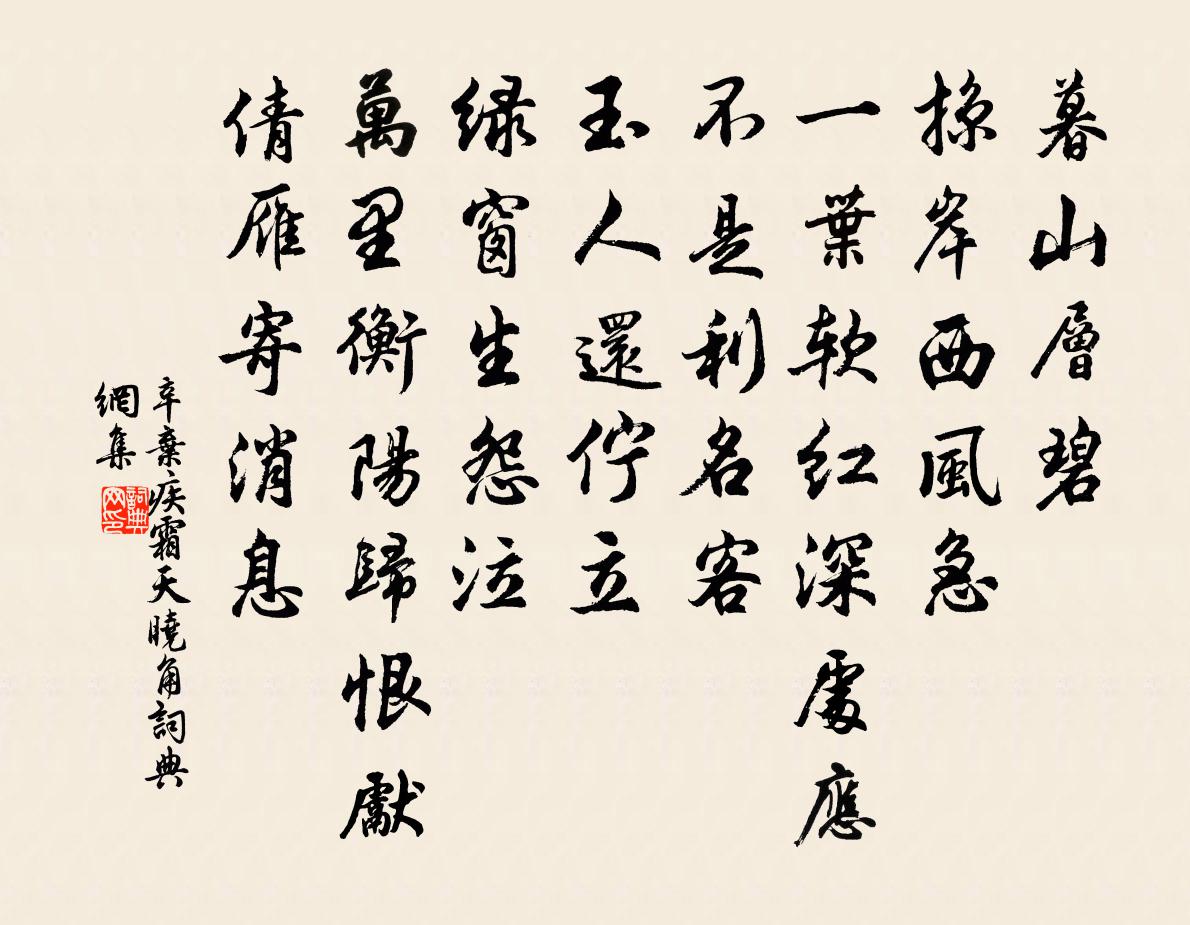 暮山層碧
掠岸西風急
一葉軟紅深處應
不是利名客
玉人還佇立
綠窗生怨泣
萬里衡陽歸恨獻
倩雁寄消息
辛棄疾霜天曉角詞典
網集
詞典
网印